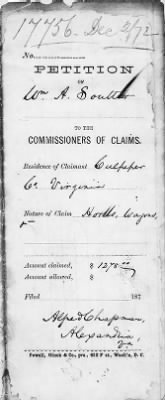 17756. Dec 2/72
No.
PETITION
OF
Wm A. Soutter
TO THE
COMMISSIONERS OF CLAIMS.
Residence of Claimant Culpeper
Co. Virginia
Nature of Claim
Amount claimed, $ 1278.00
Amount allowed, $
Filed 187
Alfred Chapman,
Alexandria,
Va
Powell, Ginck & Co., prs., 632 F st., Wash'n, D. C.